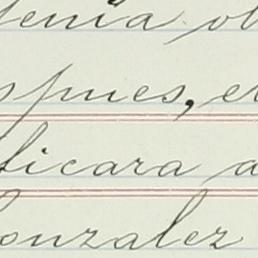 tenia ob
spues, el
licara a
Gonzalez